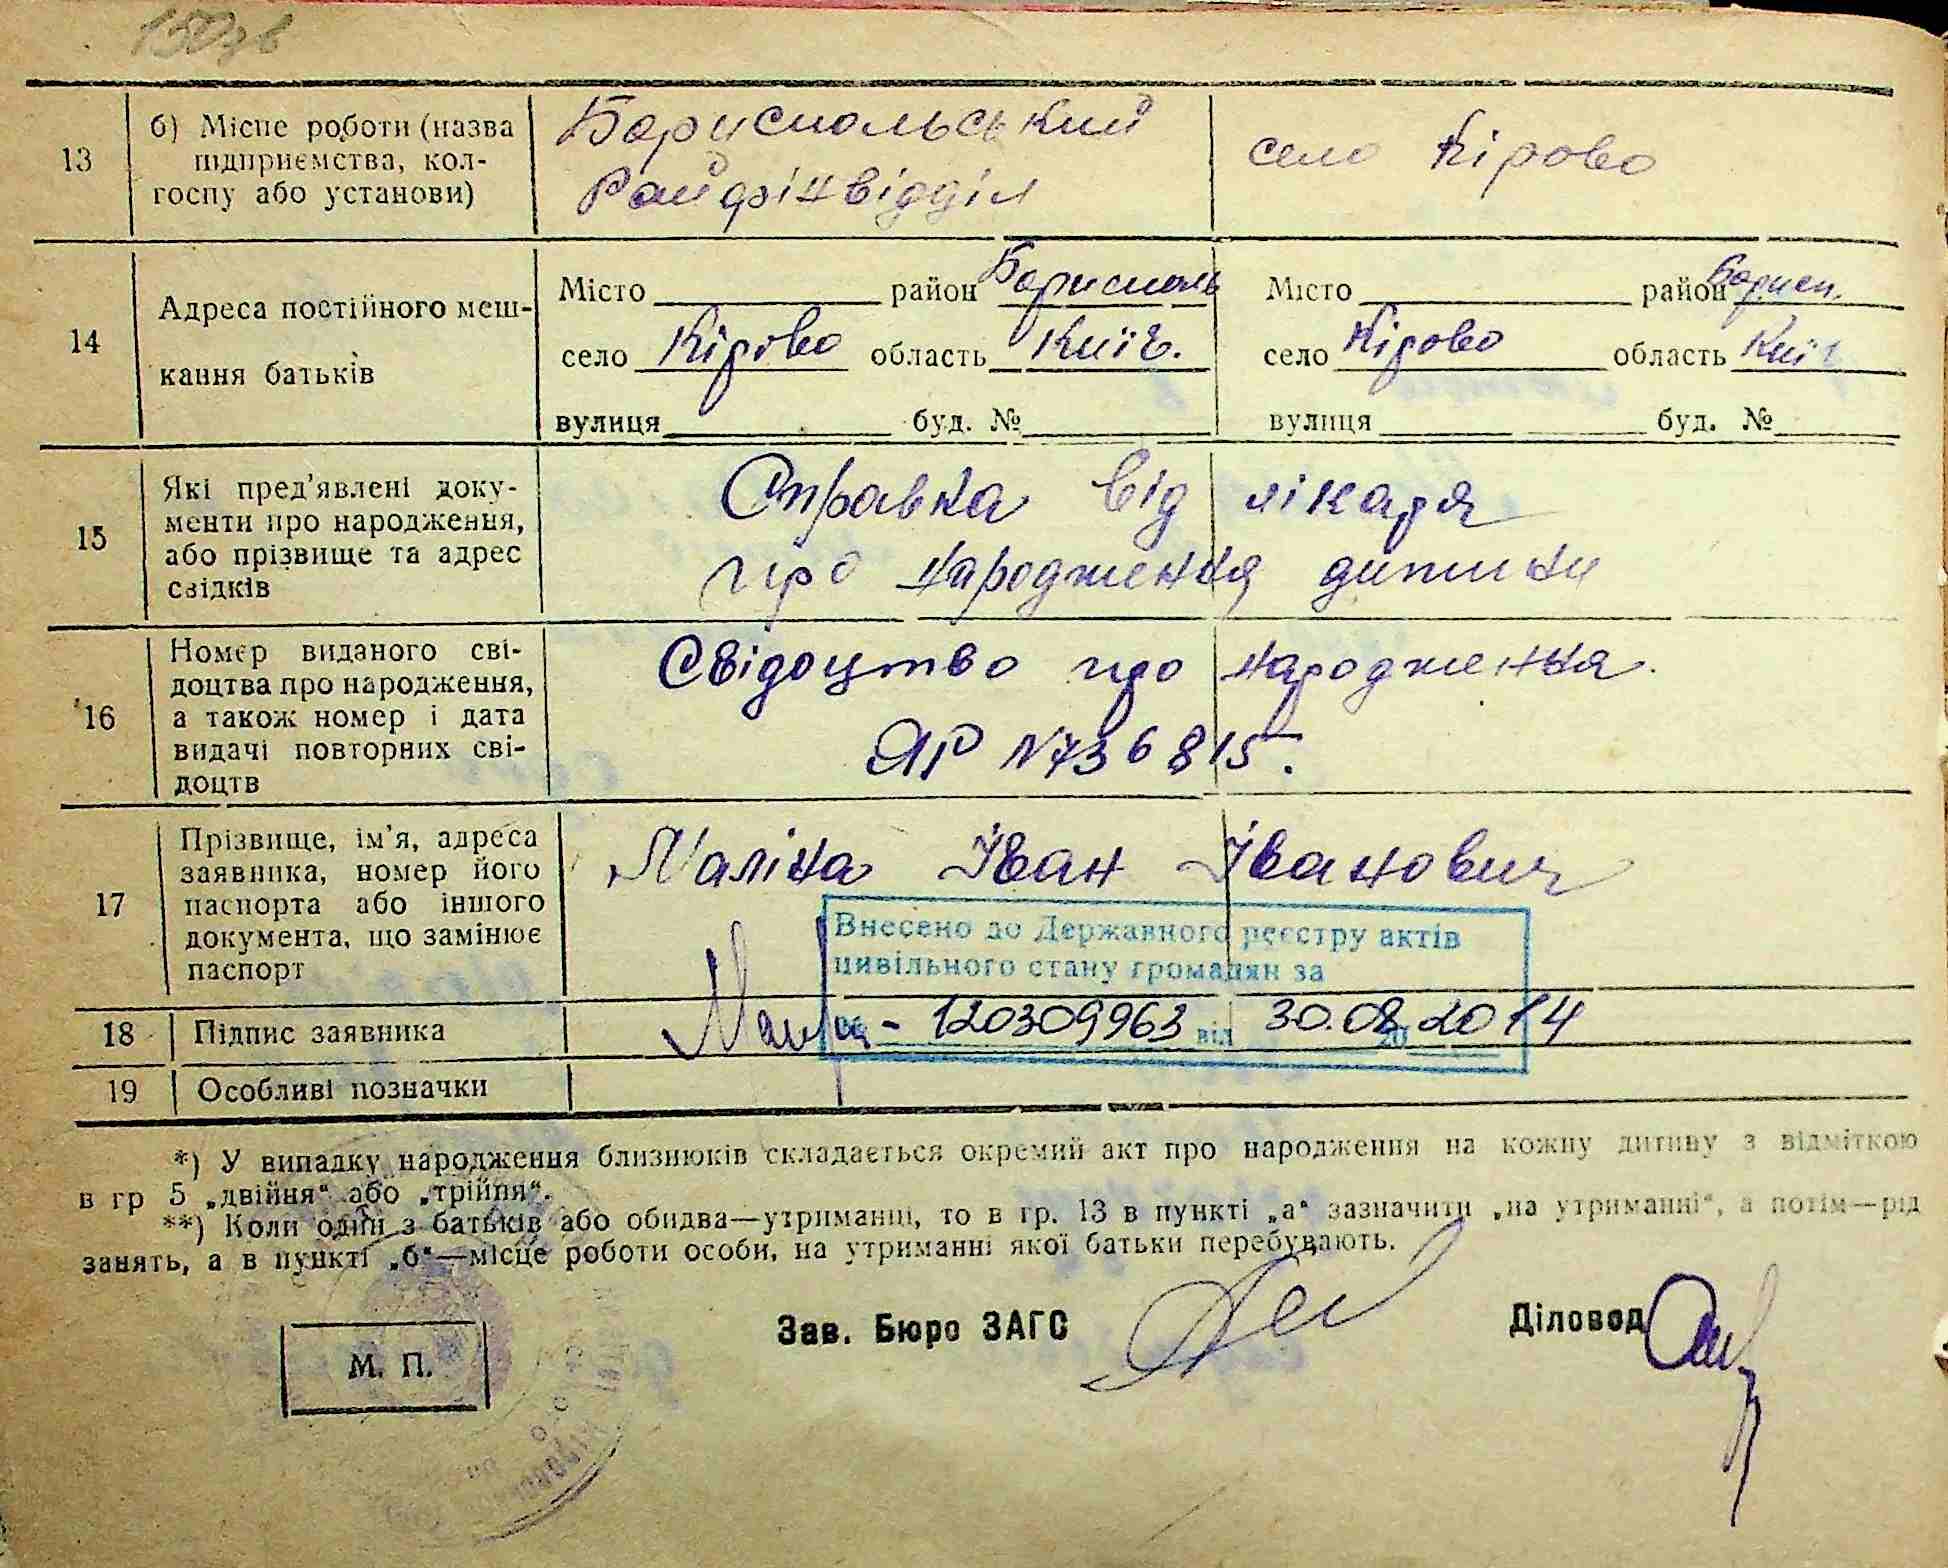 150зв
13
б) Місце роботи (назва
підприємства, кол-
госпу або установи)
Бориспольський
Райфінвідділ
село Кірово
14
Адреса постійного меш-
кання батьків
Місто район Борисполь
село Кірово область Київ.
вулиця буд. №
Місто район Борисп.
село Кірово область Київ
вулиця буд. №
15
Які пред'явлені доку-
менти про народження,
або прізвище та адрес
свідків
Справка від лікаря
про народження дитини
16
Номер виданого сві-
доцтва про народження,
а також номер і дата
видачі повторних сві-
доцтв
Свідоцтво про народження.
ЯР N736815.
17
Прізвище, ім'я, адреса
заявника, номер його
паспорта або іншого
документа, що замінює
паспорт
Маліна Іван Іванович
Внесено до Державного реєстру актів
цивільного стану громадян за
- 120309963 від 30.08.2014
18
Підпис заявника
19
Особливі позначки
*) У випадку народження близнюків складається окремий акт про народження на кожну дитину з відміткою
в гр 5 „двійня“ або „трійня“.
**) Коли один з батьків або обидва—утриманці, то в гр. 13 в пункті „а“ зазначити „на утриманні“, а потім—рід
занять, а в пункті „б“—місце роботи особи, на утриманні якої батьки перебувають.
Зав. Бюро ЗАГС
Діловод
М. П.